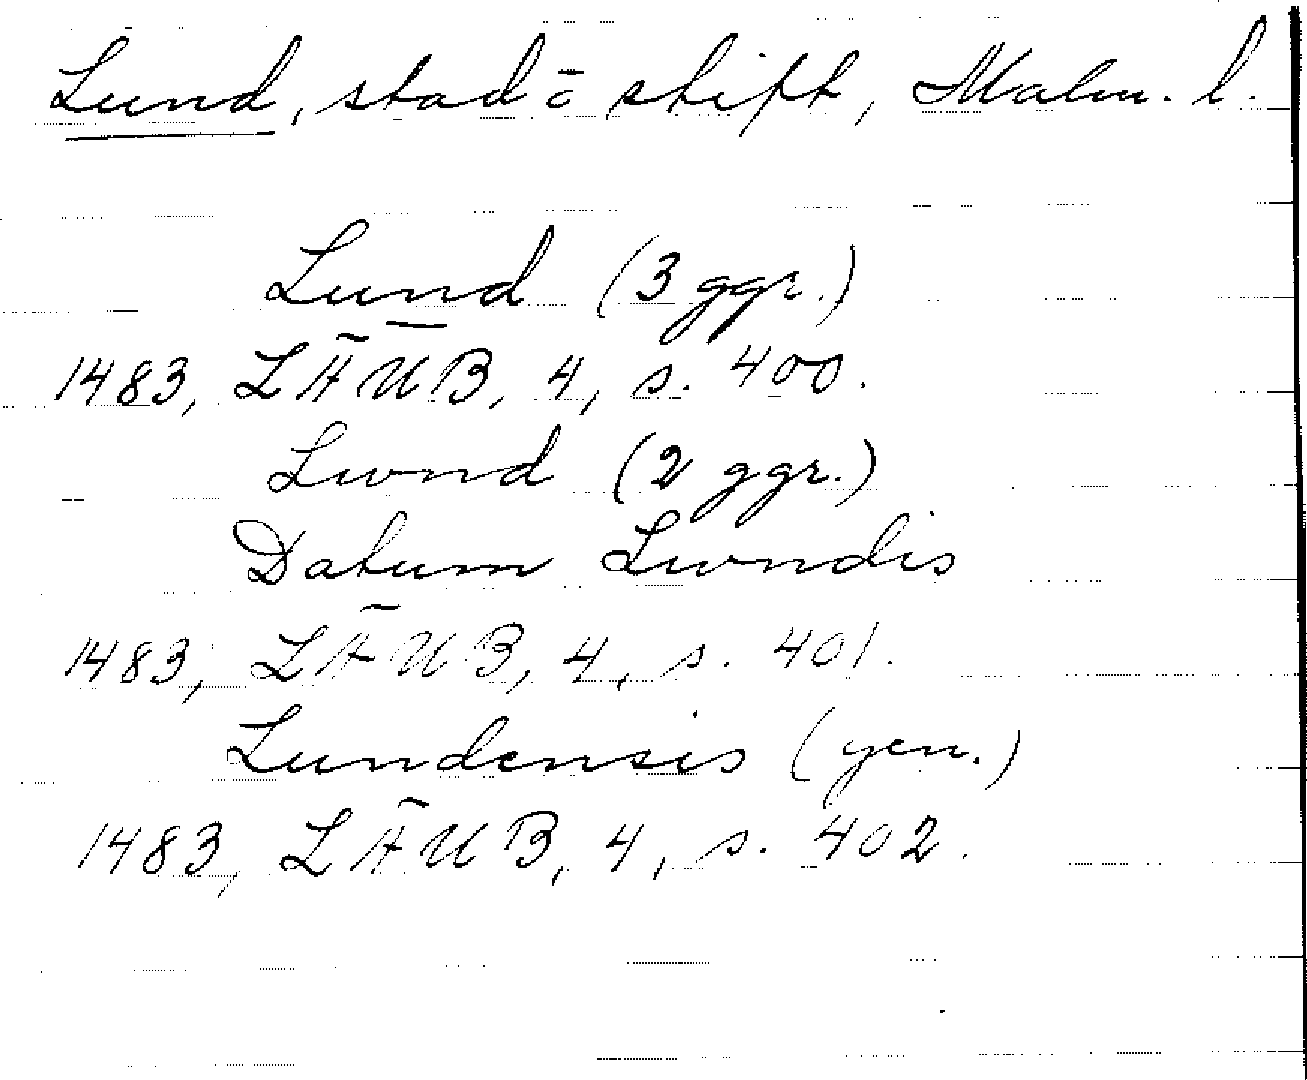 Lund, stad o stift, Malm. l.
Lund (3 ggr.)
1483, LÄUB, 4, s. 400.
Lwnd (2 ggr.)
Datum Lwndis
1483, LÄUB, 4, s. 401.
Lundensis (gen.)
1483, LÄUB, 4, s. 402.